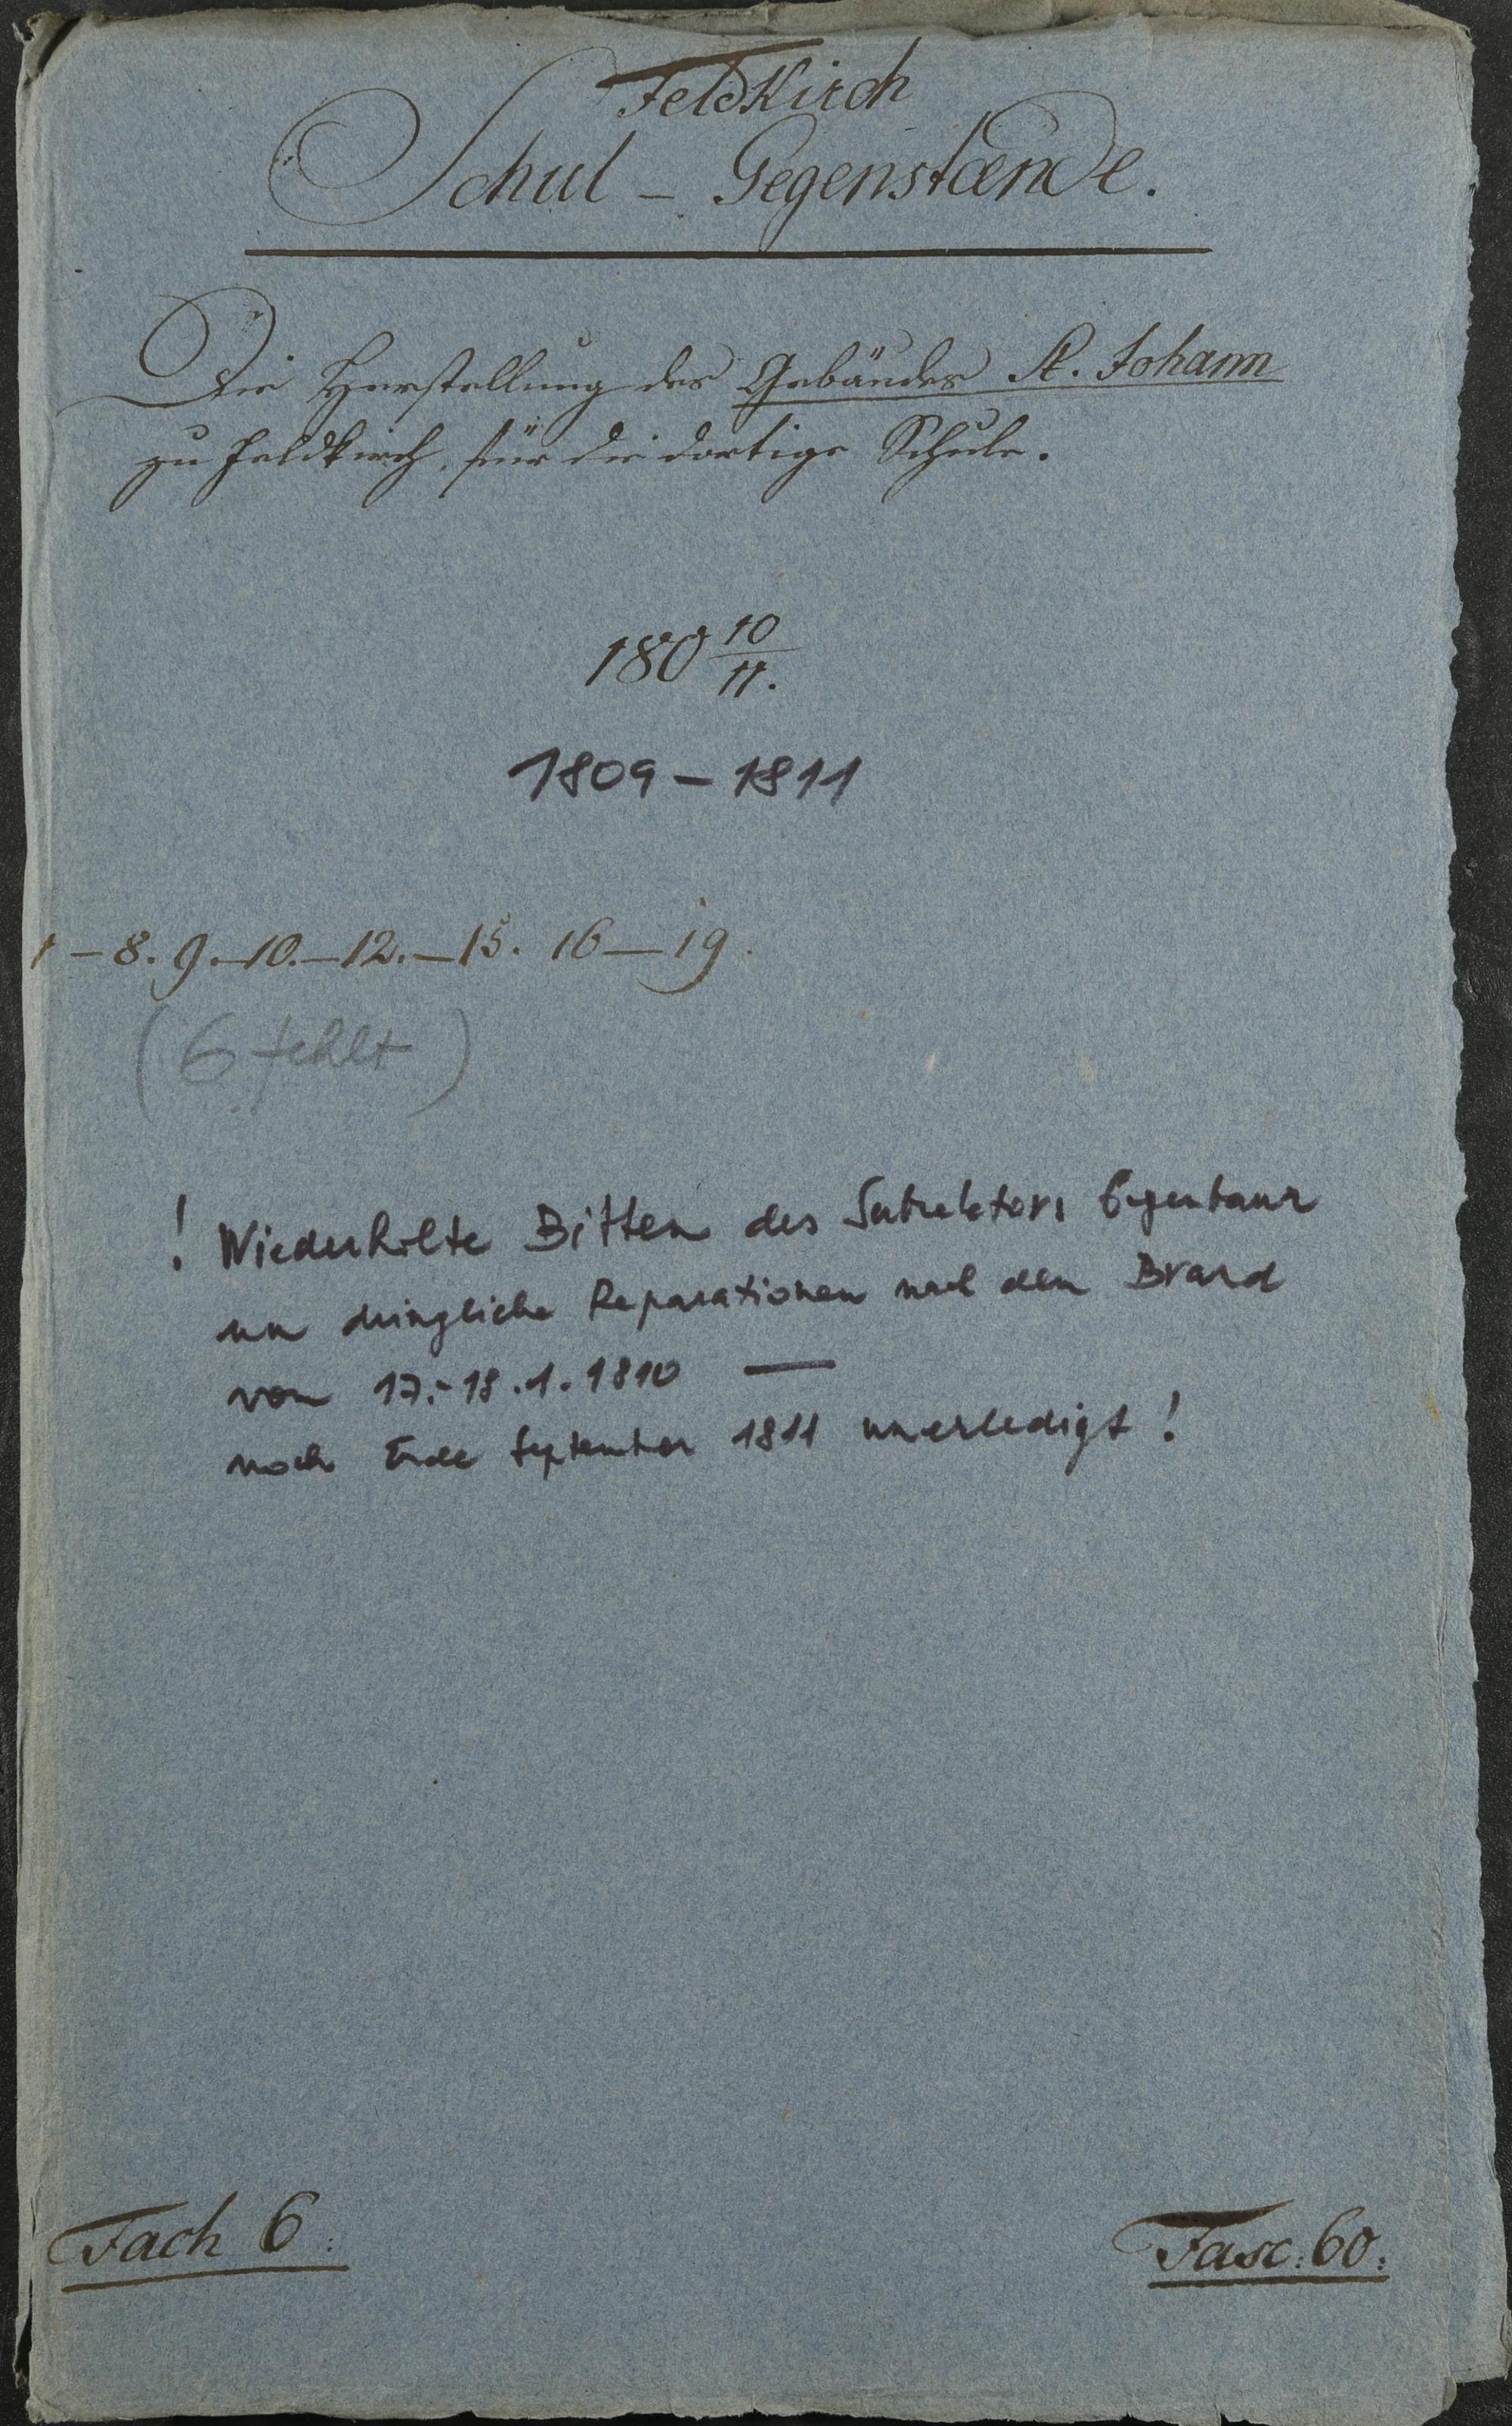 Feldkirch
Schul - Gegenstænde.
Die Herstellung des Gebäudes St. Johann
zu Feldkirch, für die dortige Schule.
180 10/11.
1809 - 1811
1 - 8. 9. - 10. - 12. - 15. 16 - 19.
(6 fehlt)
! Wiederholte Bitten des Subrektors
um dringliche Reparationen nach dem Brand
vom 17.-18.1.1810 —
noch Ende September 1811 unerledigt!
Fach 6:
Fasc: 60: